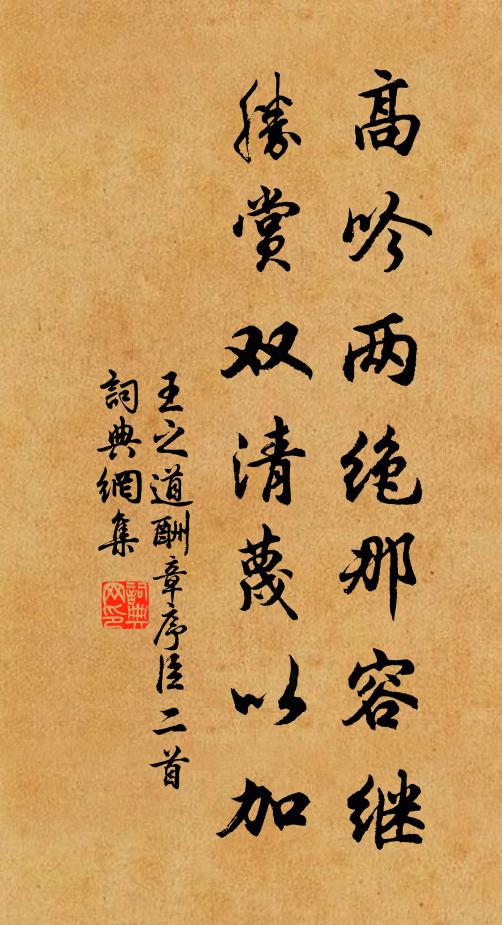 高吟两绝那容继
胜赏双清蔑以加
王之道酬章序臣二首
詞典網集
詞典网印